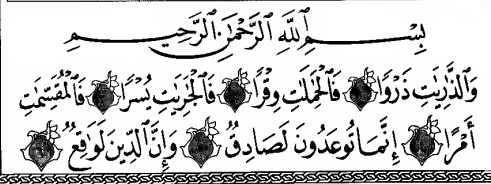 بِسْمِ ٱللَّهِ ٱلرَّحْمَٰنِ ٱلرَّحِيمِ
وَٱلذَّٰرِيَٰتِ ذَرْوًا فَٱلْحَٰمِلَٰتِ وِقْرًا فَٱلْجَٰرِيَٰتِ يُسْرًا فَٱلْمُقَسِّمَٰتِ
أَمْرًا إِنَّمَا تُوعَدُونَ لَصَادِقٌ وَإِنَّ ٱلدِّينَ لَوَٰقِعٌ